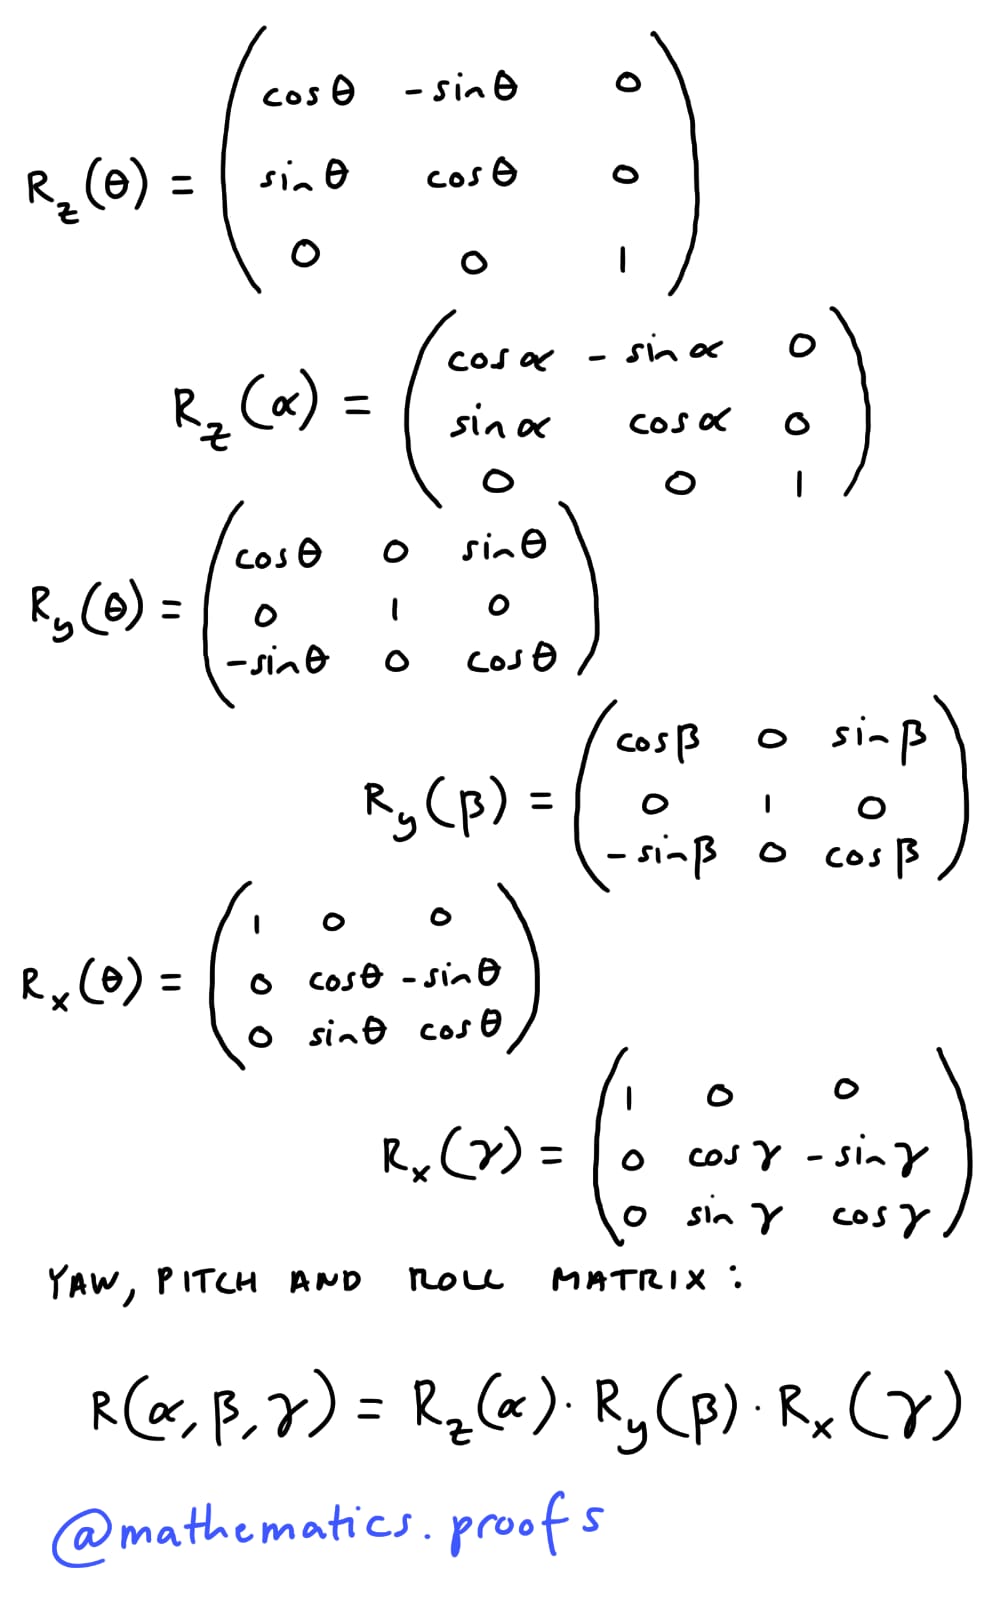 cosθ -sinθ 0
R_z(θ) = sinθ cosθ 0
0 0 1
cosα - sinα 0
R_z(α) = sinα cosα 0
0 0 1
cosθ 0 sinθ
R_y(θ) = 0 1 0
-sinθ 0 cosθ
cosβ 0 sinβ
R_y(β) = 0 1 0
- sinβ 0 cosβ
1 0 0
R_x(θ) = 0 cosθ -sinθ
0 sinθ cosθ
1 0 0
R_x(γ) = 0 cosγ - sinγ
0 sinγ cosγ
YAW, PITCH AND ROLL MATRIX:
R(α, β, γ) = R_z(α) · R_y(β) · R_x(γ)
@mathematics.proofs